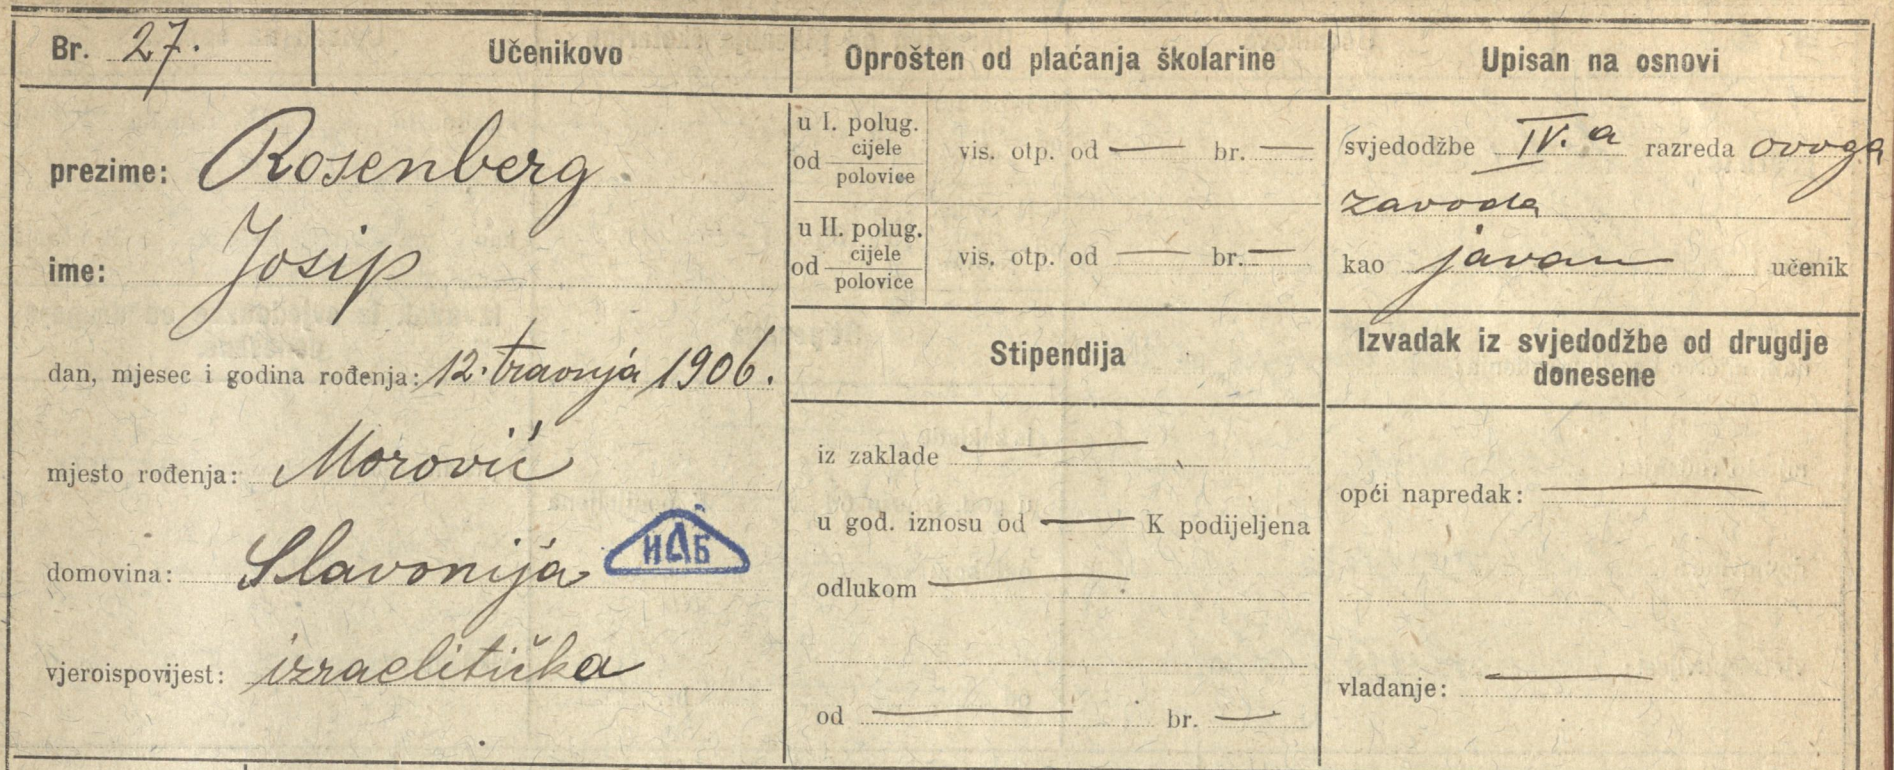 Br. 27.
Učenikovo
prezime: Rosenberg
ime: Josip
dan, mjesec i godina rođenja: 12. travnja 1906.
mjesto rođenja: Morović
domovina: Slavonija
ИАБ
vjeroispovijest: izraelitička
Oprošten od plaćanja školarine
u I. polug.
od cijele vis. otp. od — br. —
polovice
u II. polug.
od cijele vis. otp. od — br. —
polovice
Stipendija
iz zaklade —
u god. iznosu od — K podijeljena
odlukom —
od — br. —
Upisan na osnovi
svjedodžbe IV.a razreda ovoga
zavoda
kao javan učenik
Izvadak iz svjedodžbe od drugdje
donesene
opći napredak: —
vladanje: —